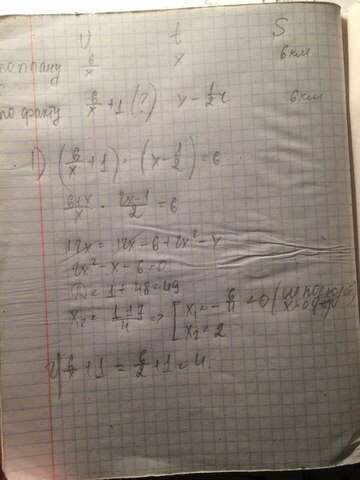 v t S
по плану 6/x x 6 км
по факту 6/x + 1 (?) x − 1/2 ч 6 км
1) (6/x + 1) · (x − 1/2) = 6
6+x/x · 2x−1/2 = 6
12x = 12x − 6 + 2x² − x
2x² − x − 6 = 0
D = 1 + 48 = 49
x₂ = 1+7/4 => [ x₁ = − 6/4
x₂ = 2
2) 6/x + 1 = 6/2 + 1 = 4